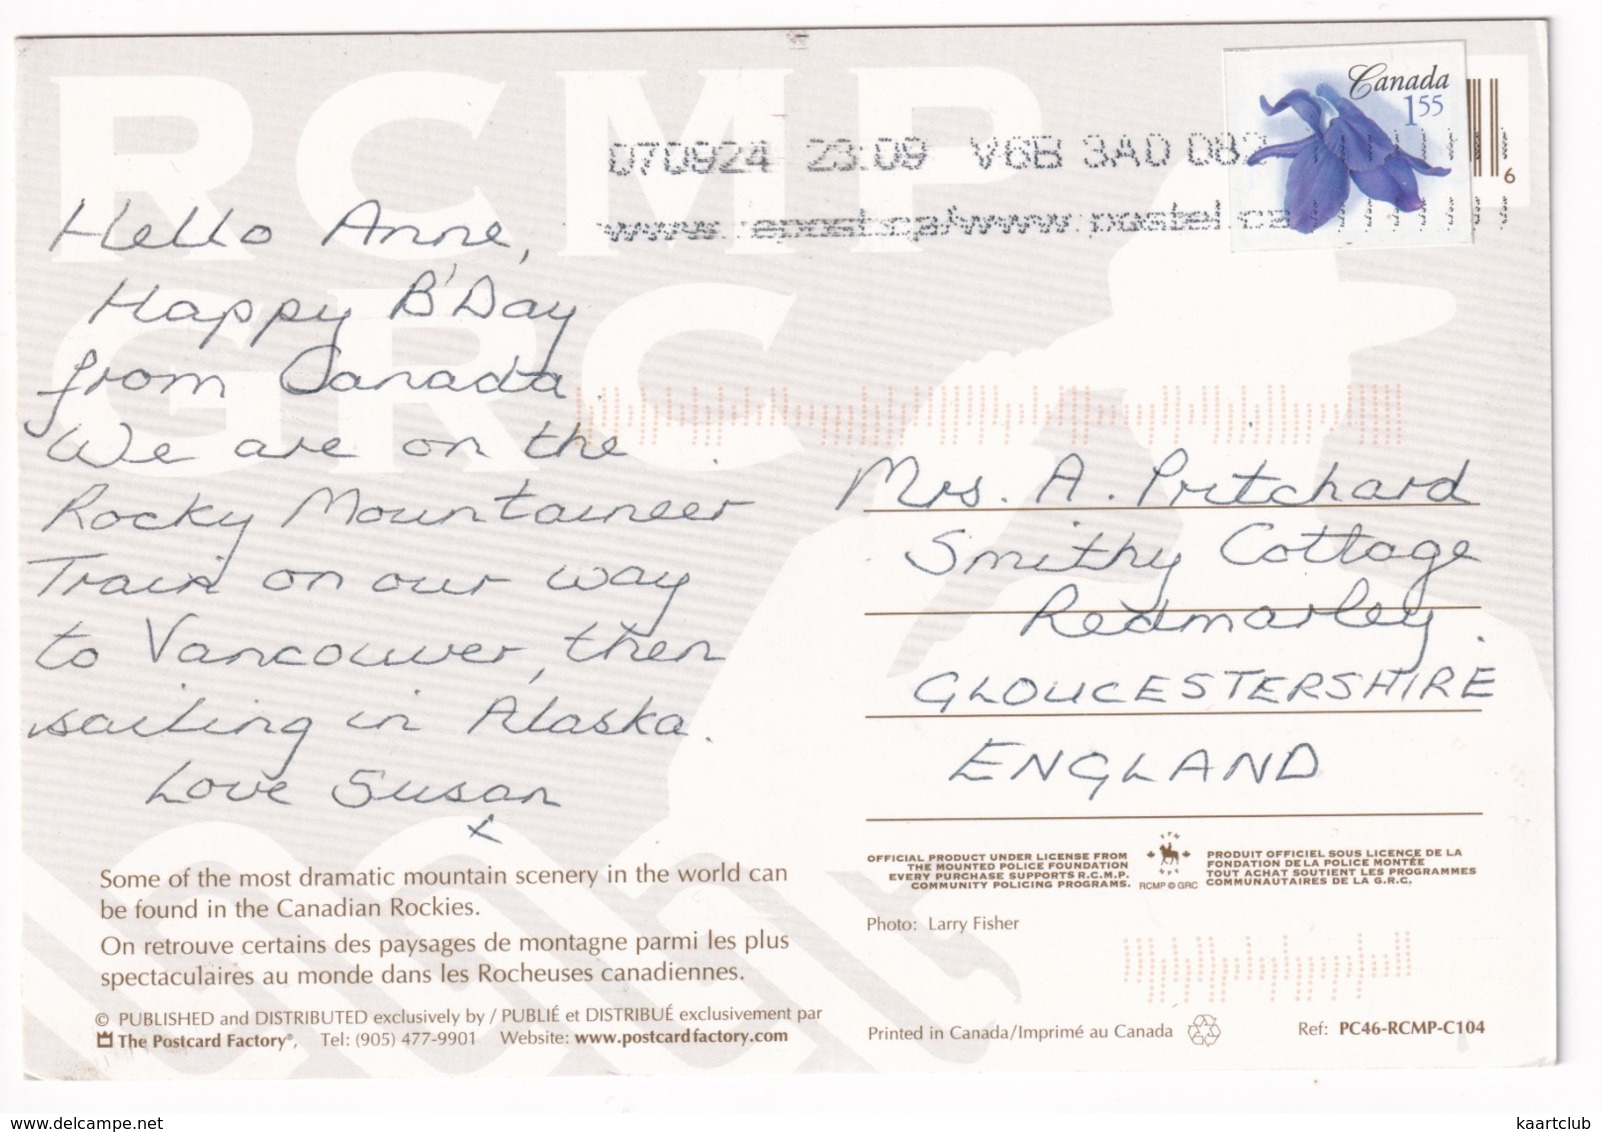 RCMP
GRC
Canada
1.55
6
070924 23:09 V6B 3A0 082
www.epost.ca/www.postel.ca
Hello Anne,
Happy B'Day
from Canada.
We are on the
Rocky Mountaineer
Train on our way
to Vancouver, then
sailing in Alaska.
Love Susan
x
Mrs. A. Pritchard
Smithy Cottage
Redmarley.
GLOUCESTERSHIRE
ENGLAND
Some of the most dramatic mountain scenery in the world can
be found in the Canadian Rockies.
On retrouve certains des paysages de montagne parmi les plus
spectaculaires au monde dans les Rocheuses canadiennes.
© PUBLISHED and DISTRIBUTED exclusively by / PUBLIÉ et DISTRIBUÉ exclusivement par
The Postcard Factory®, Tel: (905) 477-9901 Website: www.postcardfactory.com
OFFICIAL PRODUCT UNDER LICENSE FROM
THE MOUNTED POLICE FOUNDATION
EVERY PURCHASE SUPPORTS R.C.M.P.
COMMUNITY POLICING PROGRAMS.
RCMP © GRC
PRODUIT OFFICIEL SOUS LICENCE DE LA
FONDATION DE LA POLICE MONTÉE
TOUT ACHAT SOUTIENT LES PROGRAMMES
COMMUNAUTAIRES DE LA G.R.C.
Photo: Larry Fisher
Printed in Canada/Imprimé au Canada
Ref: PC46-RCMP-C104
www.delcampe.net
kaartclub